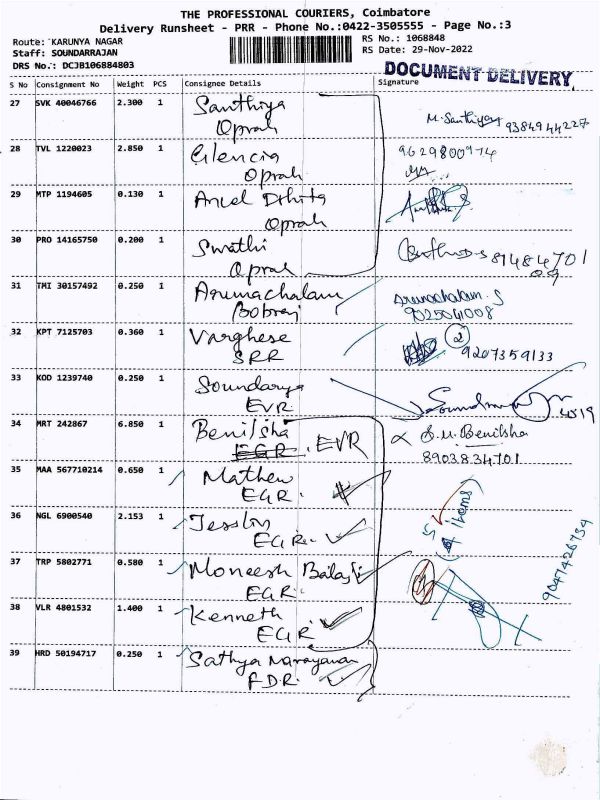 THE PROFESSIONAL COURIERS, Coimbatore
Delivery Runsheet - PRR - Phone No.:0422-3505555 - Page No.:3
Route: KARUNYA NAGAR
RS No.: 1068848
Staff: SOUNDARRAJAN
RS Date: 29-Nov-2022
DRS No.: DCJB106884803
DOCUMENT DELIVERY
S No Consignment No Weight PCS Consignee Details Signature
27 SVK 40046766 2.300 1 Santhiya M. Santhiya 9384944227
Oprah
28 TVL 1220023 2.850 1 Glencia
Oprah
29 MTP 1194605 0.130 1
Oprah
30 PRO 14165750 0.200 1 Swathi
Oprah
31 TMI 30157492 0.250 1 Arunachalam Arunachalam. S
Bobraj 902504008
32 KPT 7125703 0.360 1 Varghese 2
SRR 9207359133
33 KOD 1239740 0.250 1 Soundarya
EVR
34 MRT 242867 6.850 1 Benilsha S.M. Benilsha
EGR. EVR 8903834701
35 MAA 567710214 0.650 1 Mathew
EGR.
36 NGL 6900540 2.153 1 Jesslin 5 (4 items)
EGR.
37 TRP 5802771 0.580 1 Moneesh Balaji
EGR. 9047426734
38 VLR 4801532 1.400 1 Kenneth
EGR
39 HRD 50194717 0.250 1 Sathya Narayanan
FDR.